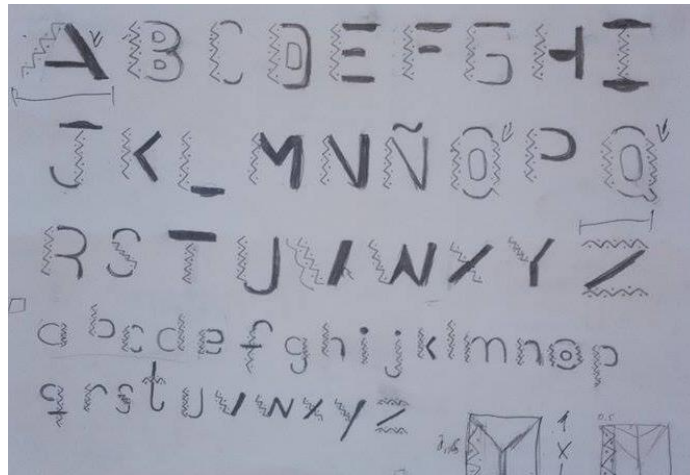 A B C D E F G H I
J K L M N Ñ O P Q
R S T U V W X Y Z
a b c d e f g h i j k l m n o p
q r s t u v w x y z